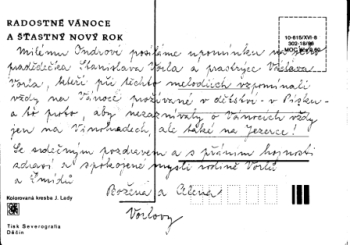 RADOSTNÉ VÁNOCE
A ŠŤASTNÝ NOVÝ ROK
Milému Indrovi posíláme upomínku na jeho
pradědečka Stanislava Vorla a prastrýce Václava
Vorla, kteří při těchto melodiích vzpomínali
vždy na Vánoce prožívané v dětství v Písku
a to proto, aby nezaznívaly o Vánocích vždy
jen na Vinohradech, ale také na Jezerce!
Se srdečným pozdravem a s přáním hojnosti
zdraví a spokojené mysli rodině Vorlů
a Šmídů
Božena a Alena
Vorlovy
Kolorovaná kresba J. Lady
Tisk Severografia
Děčín
10-615/XVI-8